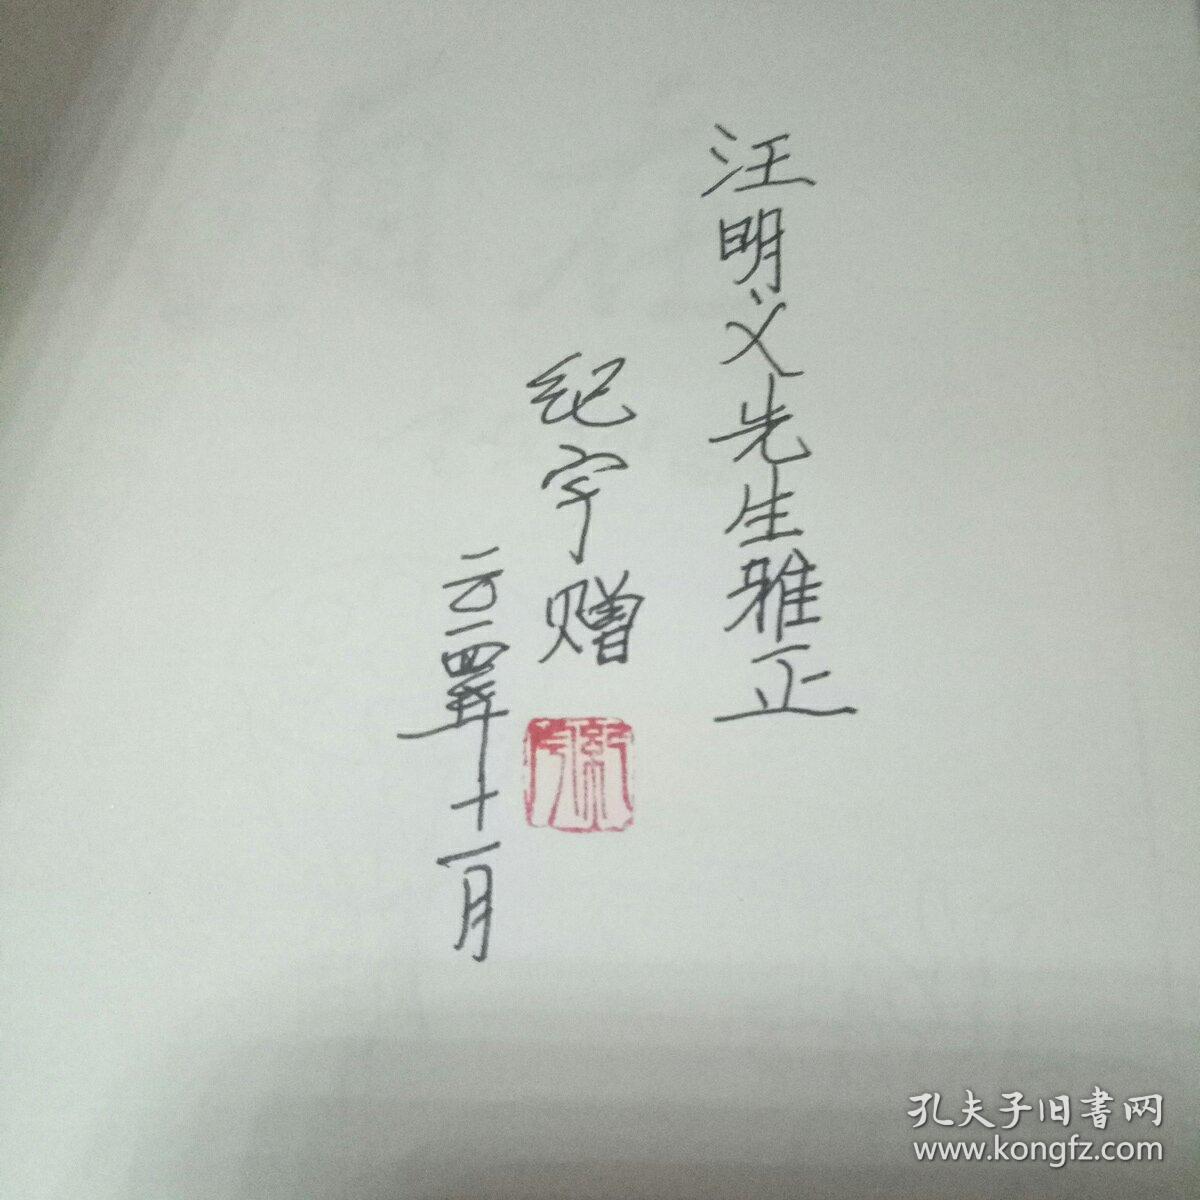 汪明义先生雅正
纪宇赠
二〇一四年十一月
孔夫子旧书网
www.kongfz.com